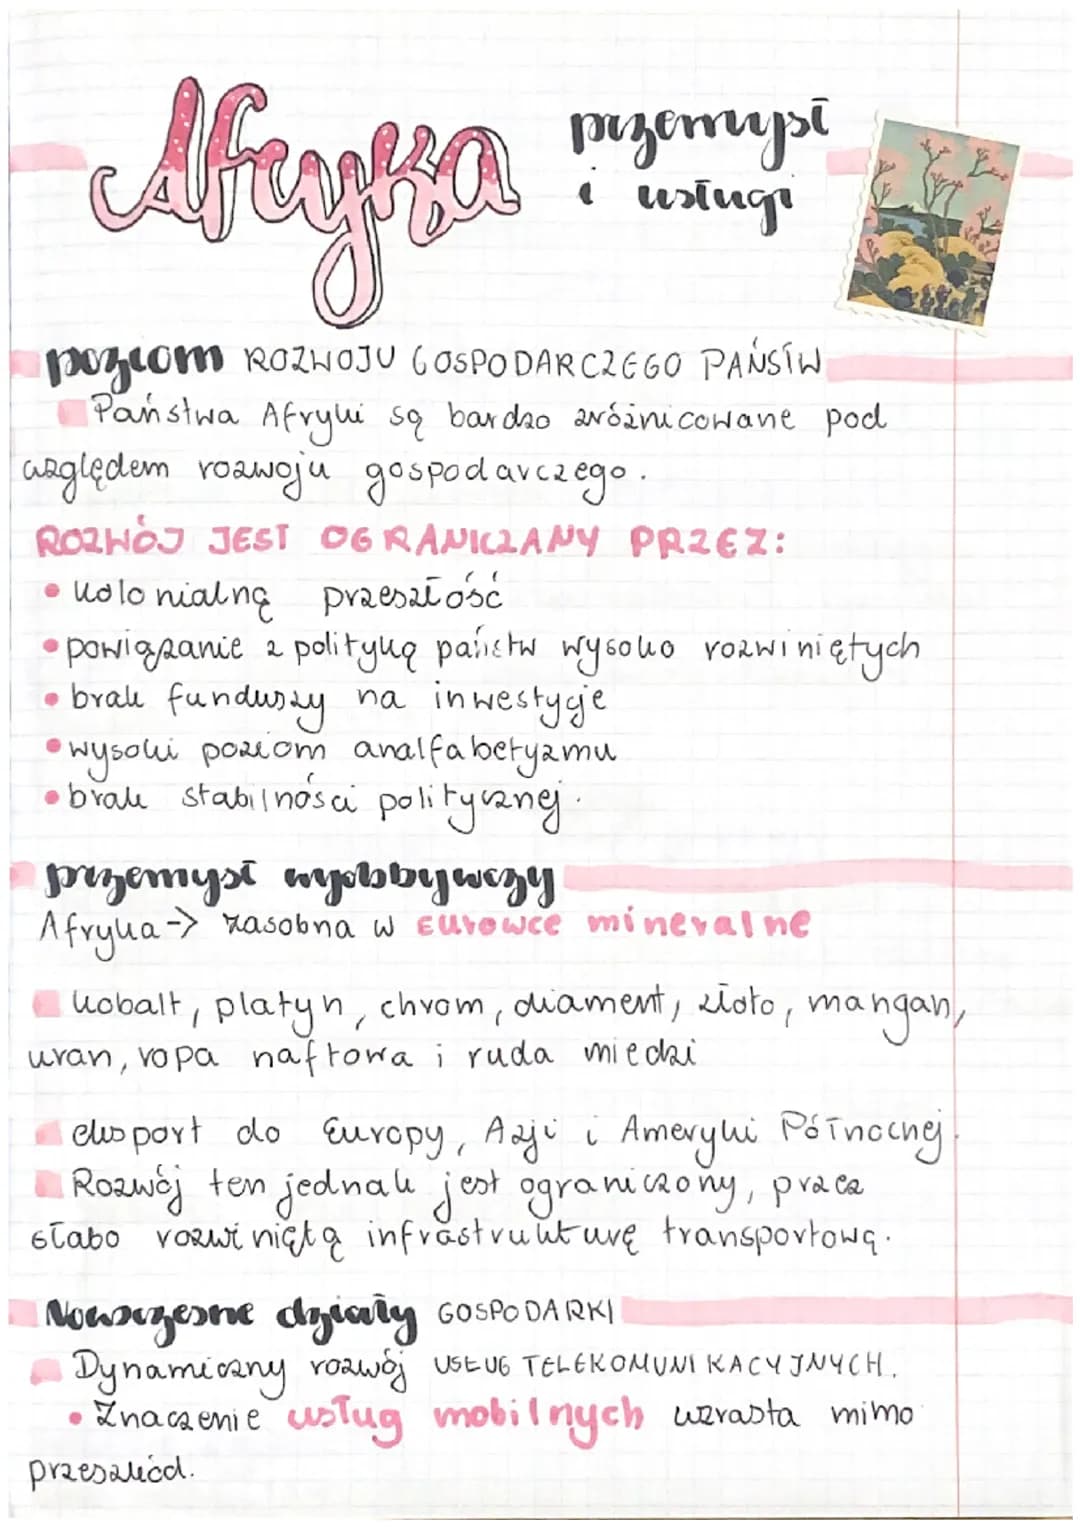 Afryka przemysł
i usługi
poziom ROZWOJU GOSPODARCZEGO PAŃSTW
Państwa Afryki są bardzo zróżnicowane pod
względem rozwoju gospodarczego.
ROZWÓJ JEST OGRANICZANY PRZEZ:
• kolonialną przeszłość
• powiązanie z polityką państw wysoko rozwiniętych
• brak funduszy na inwestycje
• wysoki poziom analfabetyzmu
• brak stabilności politycznej.
przemysł wydobywczy
Afryka -> zasobna w surowce mineralne
kobalt, platyn, chrom, diament, złoto, mangan,
uran, ropa naftowa i ruda miedzi
eksport do Europy, Azji i Ameryki Północnej.
Rozwój ten jednak jest ograniczony, przez
słabo rozwiniętą infrastrukturę transportową.
Nowoczesne działy GOSPODARKI
Dynamiczny rozwój USŁUG TELEKOMUNIKACYJNYCH.
• Znaczenie usług mobilnych wzrasta mimo
przeszkód.